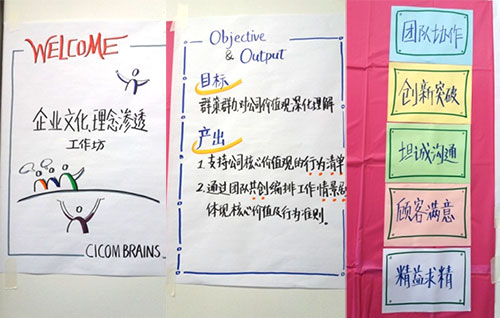 WELCOME
企业文化、理念渗透
工作坊
CICOM BRAINS
Objective
& Output
目标
群策群力对公司价值观深化理解
产出
1. 支持公司核心价值观的行为清单
2. 通过团队共创编排工作情景剧
体现核心价值及行为准则。
团队协作
创新突破
坦诚沟通
顾客满意
精益求精